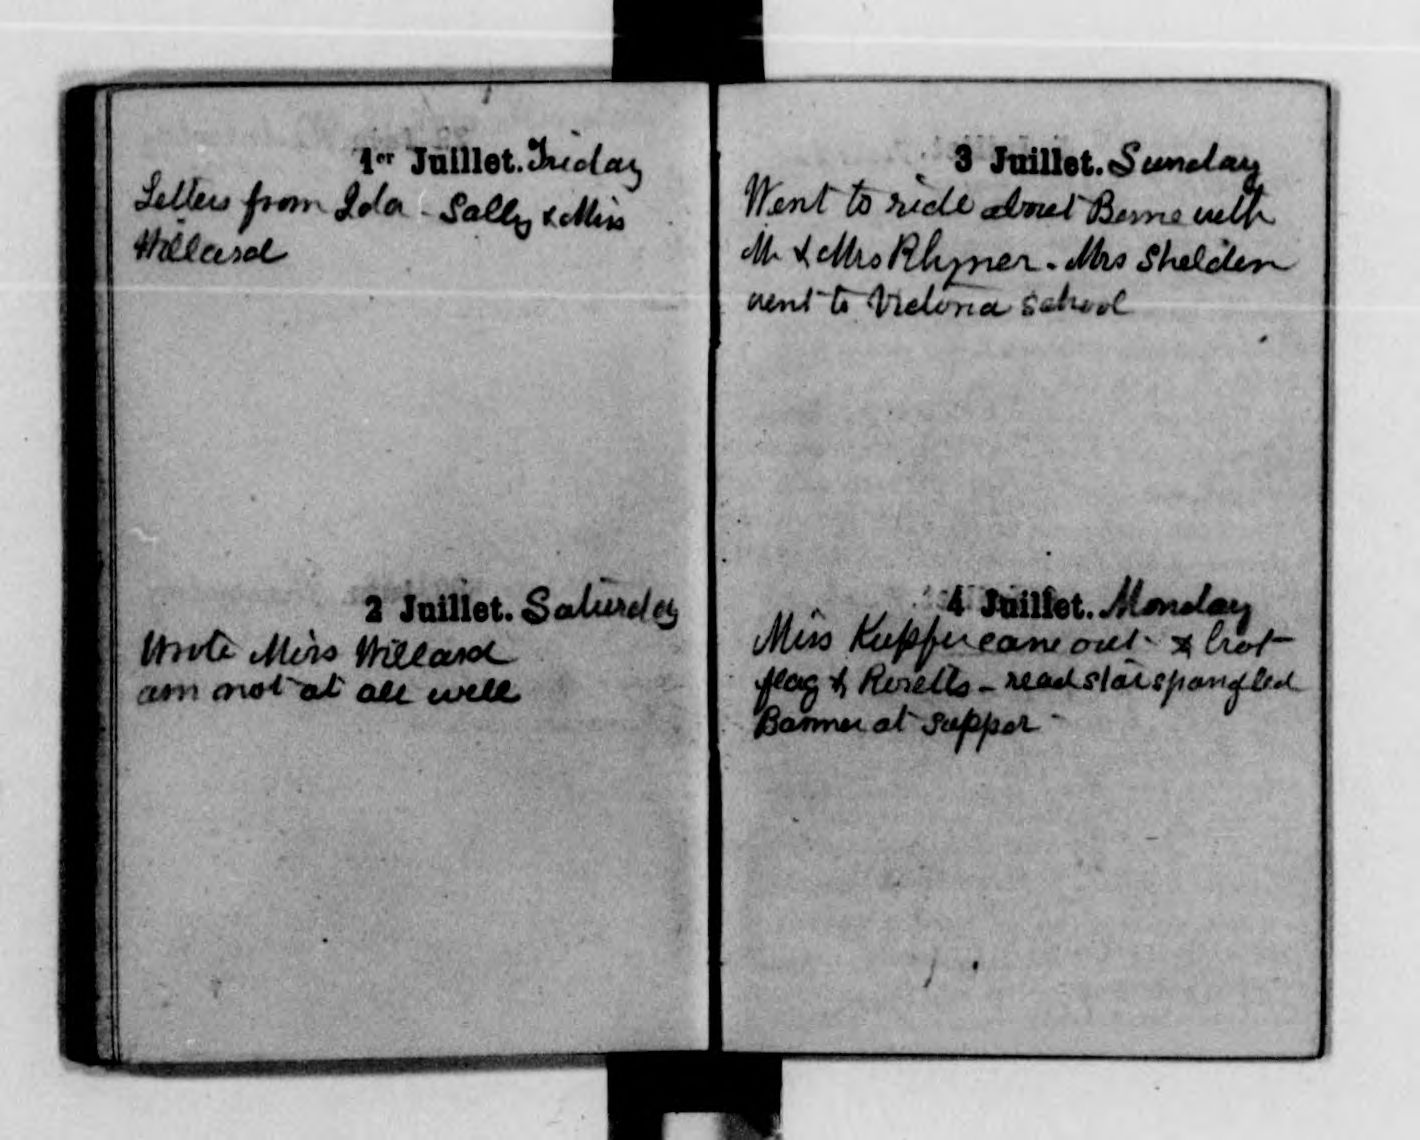 1er Juillet. Friday
Letters from Ida - Sally & Miss
Willard
2 Juillet. Saturday
Wrote Miss Willard
am not at all well
3 Juillet. Sunday
Went to ride about Berne with
Mr & Mrs Rhyner. Mrs Shelden
went to Victoria School
4 Juillet. Monday
Miss Kupfer came out & brot
flag & - read star spangled
Banner at supper -